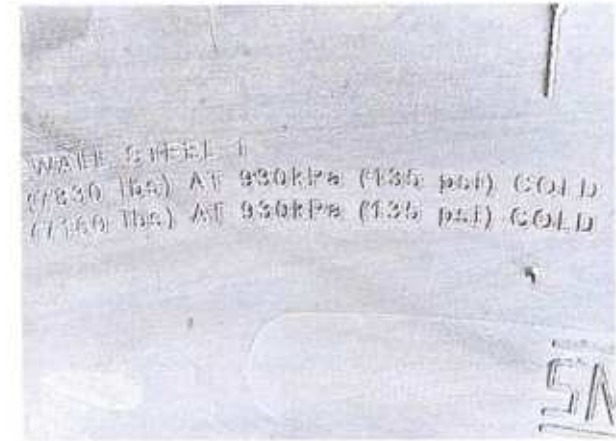 WALL STEEL 1
(7830 lbs) AT 930kPa (135 psi) COLD
(7160 lbs) AT 930kPa (135 psi) COLD